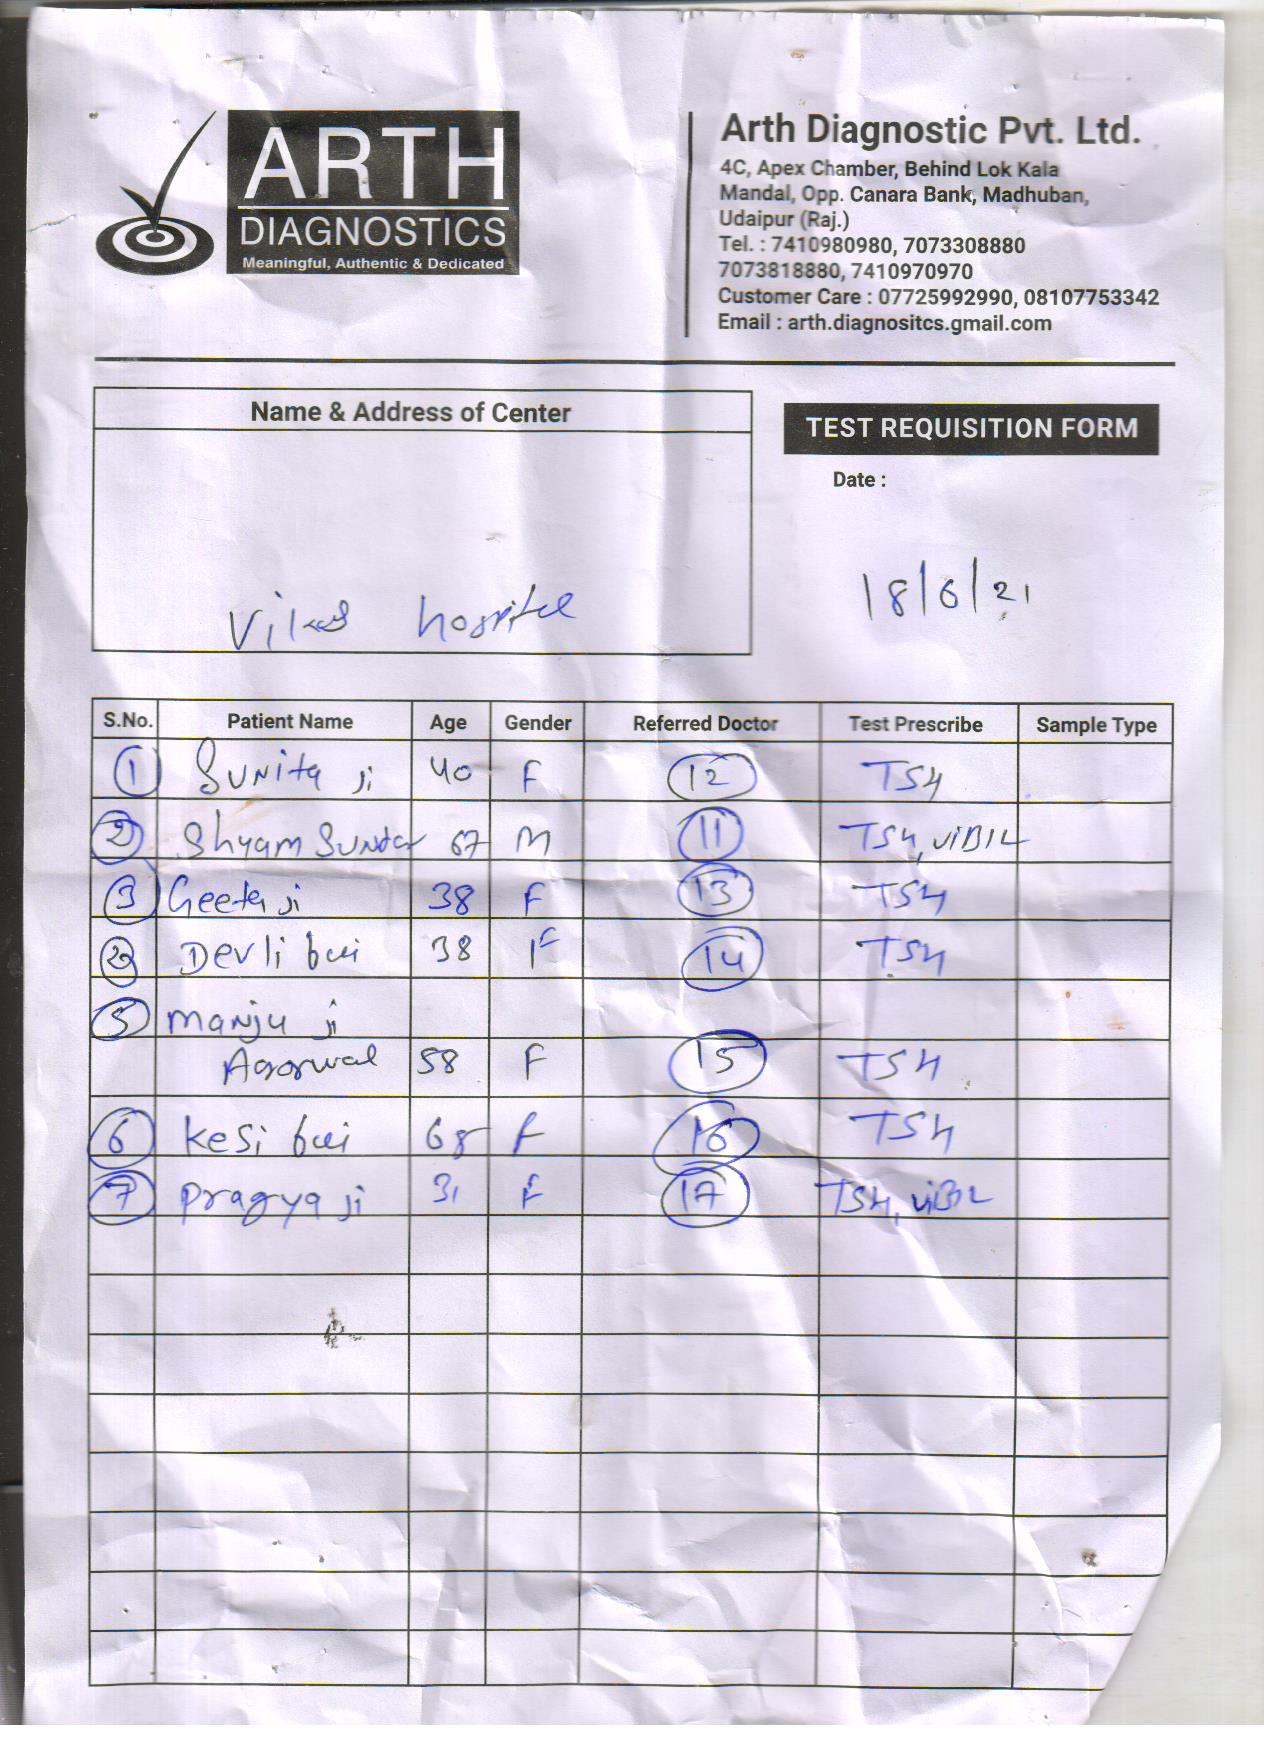 ARTH
DIAGNOSTICS
Meaningful, Authentic & Dedicated
Arth Diagnostic Pvt. Ltd.
4C, Apex Chamber, Behind Lok Kala
Mandal, Opp. Canara Bank, Madhuban,
Udaipur (Raj.)
Tel. : 7410980980, 7073308880
7073818880, 7410970970
Customer Care : 07725992990, 08107753342
Email : arth.diagnositcs.gmail.com
Name & Address of Center
TEST REQUISITION FORM
Date :
18/6/21
Vikas hospital
S.No. Patient Name Age Gender Referred Doctor Test Prescribe Sample Type
1 Sunita ji 40 F 12 TSH
2 Shyam Sunder 67 M 11 TSH, ViB12
3 Geeta ji 38 F 13 TSH
Devli bai 38 F 14 TSH
5 Manju ji
Agarwal 58 F 15 TSH
6 Kesi bai 68 F 16 TSH
7 Pragya ji 31 F 17 TSH, ViB12